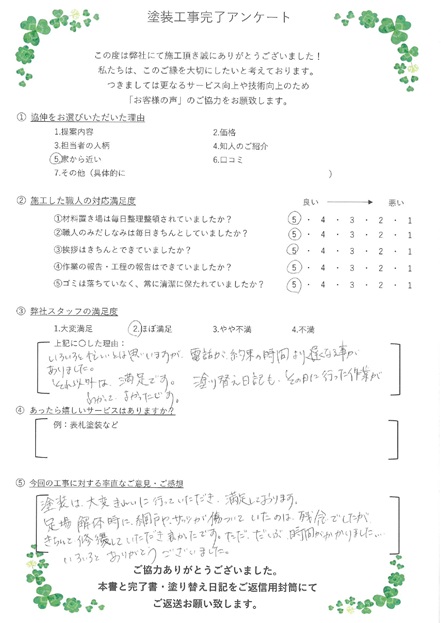 塗装工事完了アンケート
この度は弊社にて施工頂き誠にありがとうございました！
私たちは、このご縁を大切にしたいと考えております。
つきましては更なるサービス向上や技術向上のため
「お客様の声」のご協力をお願致します。
① 協伸をお選びいただいた理由
1.提案内容 2.価格
3.担当者の人柄 4.知人のご紹介
5.家から近い 6.口コミ
7.その他（具体的に ）
② 施工した職人の対応満足度 良い → 悪い
①材料置き場は毎日整理整頓されていましたか？ 5・4・3・2・1
②職人のみだしなみは毎日きちんとしていましたか？ 5・4・3・2・1
③挨拶はきちんとできていましたか？ 5・4・3・2・1
④作業の報告・工程の報告はできていましたか？ 5・4・3・2・1
⑤ゴミは落ちていなく、常に清潔に保たれていましたか？ 5・4・3・2・1
③ 弊社スタッフの満足度
1.大変満足 2.ほぼ満足 3.やや不満 4.不満
上記に○した理由：
いろいろ忙しいとは思いますが、電話が、約束の時間より遅くなる事が
ありました。
それ以外は、満足です。 塗り替え日記も、その日に行った作業が
わかって、よかったです。
④ あったら嬉しいサービスはありますか？
例：表札塗装など
⑤ 今回の工事に対する率直なご意見・ご感想
塗装は、大変きれいに行っていただき、満足しております。
足場解体時に、網戸や、サッシが傷ついていたのは、残念でしたが
きちんと修繕していただき良かったです。ただ、だいぶ時間がかかりました…
いろいろとありがとうございました。
ご協力ありがとうございました。
本書と完了書・塗り替え日記をご返信用封筒にて
ご返送お願い致します。